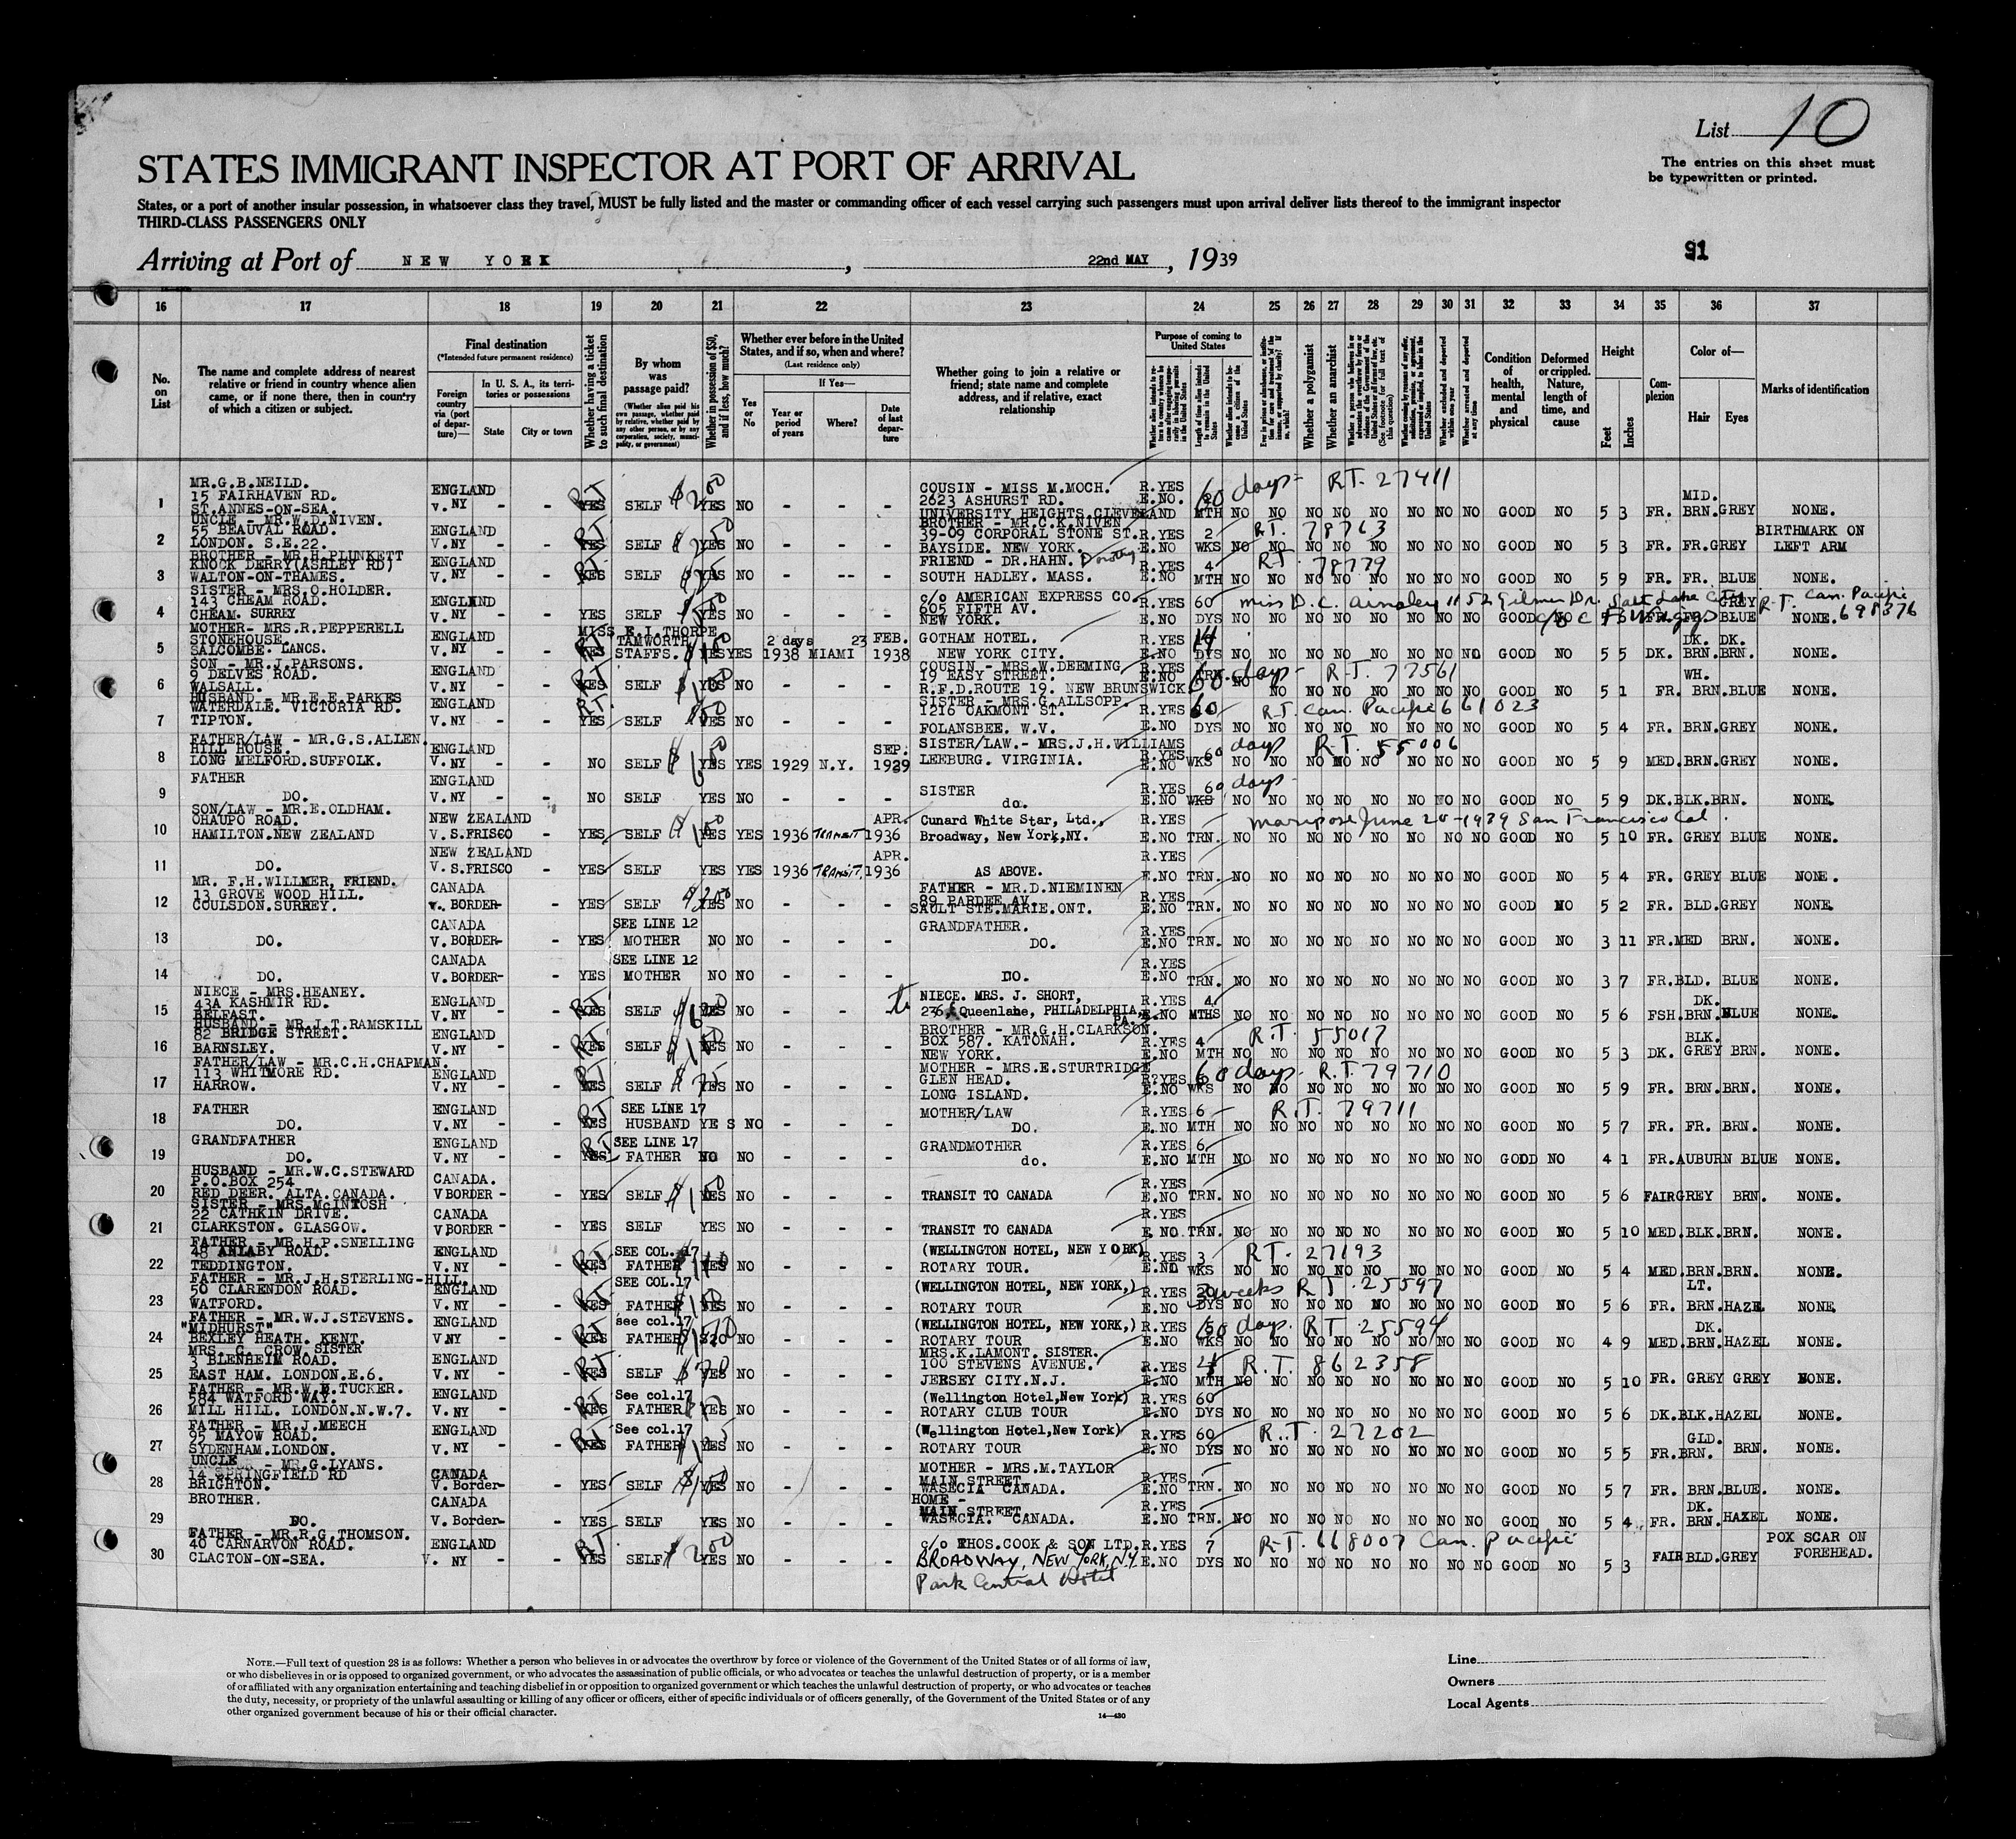 List 10
The entries on this sheet must
be typewritten or printed.
STATES IMMIGRANT INSPECTOR AT PORT OF ARRIVAL
States, or a port of another insular possession, in whatsoever class they travel, MUST be fully listed and the master or commanding officer of each vessel carrying such passengers must upon arrival deliver lists thereof to the immigrant inspector
THIRD-CLASS PASSENGERS ONLY
Arriving at Port of NEW YORK, 22nd MAY, 1939
91
16 17 18 19 20 21 22 23 24 25 26 27 28 29 30 31 32 33 34 35 36 37
No. on List
The name and complete address of nearest relative or friend in country whence alien came, or if none there, then in country of which a citizen or subject.
Final destination
(*Intended future permanent residence)
Foreign country via (port of departure)—
In U. S. A., its territories or possessions
State
City or town
Whether having a ticket to such final destination
By whom was passage paid?
(Whether alien paid his own passage, whether paid by relative, whether paid by any other person, or by any corporation, society, municipality, or government)
Whether in possession of $50, and if less, how much?
Whether ever before in the United States, and if so, when and where?
(Last residence only)
Yes or No
If Yes—
Year or period of years
Where?
Date of last departure
Whether going to join a relative or friend; state name and complete address, and if relative, exact relationship
Purpose of coming to United States
Length of time alien intends to remain in the United States
Whether alien intends to become a citizen of the United States
Whether a polygamist
Whether an anarchist
Whether excluded and deported within one year
Whether arrested and deported at any time
Condition of health, mental and physical
Deformed or crippled. Nature, length of time, and cause
Height
Feet
Inches
Complexion
Color of—
Hair
Eyes
Marks of identification
1 MR.G.B.NEILD. 15 FAIRHAVEN RD. ST.ANNES-ON-SEA. ENGLAND V. NY - - RT YES SELF $200 YES NO - - - COUSIN - MISS M.MOCH. 2623 ASHURST RD. UNIVERSITY HEIGHTS.CLEVELAND R.YES E.NO. MTH 60 days- RT. 27411 NO NO NO NO NO NO NO NO GOOD NO 5 3 FR. MID. BRN.GREY NONE.
2 UNCLE - MR.W.D.NIVEN. 55 BEAUVAL ROAD. LONDON. S.E.22. ENGLAND V. NY - - RT YES SELF YES NO - - - BROTHER - MR.C.K.NIVEN 39-09 CORPORAL STONE ST. BAYSIDE. NEW YORK. R.YES E.NO 2 WKS RT. 78763 NO NO NO NO NO NO NO NO GOOD NO 5 3 FR. FR.GREY BIRTHMARK ON LEFT ARM
3 BROTHER - MR.H.PLUNKETT KNOCK DERRY(ASHLEY RD) WALTON-ON-THAMES. ENGLAND V. NY - - RT YES SELF YES NO - -- - FRIEND - DR.HAHN. Dorothy SOUTH HADLEY. MASS. R.YES E.NO 4 MTH RT. 78779 NO NO NO NO NO NO NO NO GOOD NO 5 9 FR. FR. BLUE NONE.
4 SISTER - MRS.O.HOLDER. 143 CHEAM ROAD. CHEAM. SURREY ENGLAND V. NY - - YES SELF YES NO - - - c/o AMERICAN EXPRESS CO. 605 FIFTH AV. NEW YORK. R.YES E.NO 60 DYS Miss D. C. Ainsley 1152 Gilmer Dr. Salt Lake City RT. Can. Pacific 698376 NO NO NO NO NO NO NO NO BLUE NONE.
5 MOTHER- MRS.R.PEPPERELL STONEHOUSE. SALCOMBE. LANCS. ENGLAND V. NY - - RT YES MISS E.I.THORPE TAMWORTH STAFFS. YES YES 2 days 1938 MIAMI 23 FEB. 1938 GOTHAM HOTEL. NEW YORK CITY. R.YES E.NO 14 DYS NO NO NO NO NO NO NO NO GOOD NO 5 5 DK. DK. BRN. DK. BRN. NONE.
6 SON - MR.J.PARSONS. 9 DELVES ROAD. WALSALL. ENGLAND V. NY - - RT YES SELF YES NO - - - COUSIN - MRS.W.DEEMING 19 EASY STREET. R.F.D.ROUTE 19. NEW BRUNSWICK. R.YES E.NO 60 days- RT. 77561 NO NO NO NO NO NO NO NO GOOD NO 5 1 FR. WH. BRN.BLUE NONE.
7 HUSBAND - MR.E.E.PARKES WATERDALE. VICTORIA RD. TIPTON. ENGLAND V. NY - - RT. YES SELF YES NO - - - SISTER - MRS.G.ALLSOPP. 1216 OAKMONT ST. FOLANSBEE. W.V. R.YES E.NO 60 DYS RT. Can. Pacific 661023 NO NO NO NO NO NO NO NO GOOD NO 5 4 FR. BRN.GREY NONE.
8 FATHER/LAW - MR.G.S.ALLEN. HILL HOUSE. LONG MELFORD.SUFFOLK. ENGLAND V. NY - - NO SELF YES YES 1929 N.Y. SEP. 1929 SISTER/LAW.- MRS.J.H.WILLIAMS LEEBURG. VIRGINIA. R.YES E.NO 60 days WKS RT. 55006 NO NO NO NO NO NO NO NO GOOD NO 5 9 MED.BRN.GREY NONE.
9 FATHER DO. ENGLAND V. NY - - NO SELF YES NO - - - SISTER do. R.YES E.NO 60 days- WKS NO NO NO NO NO NO NO NO GOOD NO 5 9 DK.BLK.BRN. NONE.
10 SON/LAW - MR.E.OLDHAM. OHAUPO ROAD. HAMILTON.NEW ZEALAND NEW ZEALAND V. S.FRISCO - YES SELF YES YES 1936 TRANSIT APR. 1936 Cunard White Star, Ltd., Broadway, New York,NY. R.YES E.NO TRN. Mariposa June 20-1939 San Francisco Cal. NO NO NO NO NO NO NO NO GOOD NO 5 10 FR. GREY BLUE NONE.
11 DO. NEW ZEALAND V. S.FRISCO - YES SELF YES YES 1936 TRANSIT APR. 1936 AS ABOVE. R.YES E.NO TRN. NO NO NO NO NO NO NO NO GOOD NO 5 4 FR. GREY BLUE NONE.
12 MR. F.H.WILLMER, FRIEND. 13 GROVE WOOD HILL. COULSDON.SURREY. CANADA v. BORDER- - YES SELF YES NO - - - FATHER - MR.D.NIEMINEN 89 PARDEE AV. SAULT STE.MARIE.ONT. R.YES E.NO TRN. NO NO NO NO NO NO NO NO GOOD NO 5 2 FR. BLD.GREY NONE.
13 DO. CANADA V. BORDER- - YES SEE LINE 12 MOTHER NO NO - - - GRANDFATHER. DO. R.YES E.NO TRN. NO NO NO NO NO NO NO NO GOOD NO 3 11 FR.MED BRN. NONE.
14 DO. CANADA V. BORDER- - YES SEE LINE 12 MOTHER NO NO - - - DO. R.YES E.NO TRN. NO NO NO NO NO NO NO NO GOOD NO 3 7 FR.BLD. BLUE NONE.
15 NIECE - MRS.HEANEY. 43A KASHMIR RD. BELFAST. ENGLAND V. NY - - RT YES SELF YES NO - - - NIECE. MRS. J. SHORT, Queenlane, PHILADELPHIA, PA. R.YES E.NO 4 MTHS NO NO NO NO NO NO NO NO GOOD NO 5 6 FSH. DK. BRN. BLUE NONE.
16 HUSBAND - MR.J.T.RAMSKILL 82 BRIDGE STREET. BARNSLEY. ENGLAND V. NY - - RT YES SELF YES NO - - - BROTHER - MR.G.H.CLARKSON. BOX 587. KATONAH. NEW YORK. R.YES E.NO 4 MTH RT. 55017 NO NO NO NO NO NO NO NO GOOD NO 5 3 DK. BLK. GREY BRN. NONE.
17 FATHER/LAW - MR.C.H.CHAPMAN. 113 WHITMORE RD. HARROW. ENGLAND V. NY - - RT YES SELF $75 YES NO - - - MOTHER - MRS.E.STURTRIDGE GLEN HEAD. LONG ISLAND. R?YES E.NO WKS 60 days- R.T. 79710 NO NO NO NO NO NO NO NO GOOD NO 5 9 FR. BRN.BRN. NONE.
18 FATHER DO. ENGLAND V. NY - - RT YES SEE LINE 17 HUSBAND YES NO - - - MOTHER/LAW DO. R.YES E.NO 6 MTH R.T. 79711 NO NO NO NO NO NO NO NO GOOD NO 5 7 FR. FR. BRN. NONE.
19 GRANDFATHER DO. ENGLAND V. NY - - RT YES SEE LINE 17 FATHER NO NO - - - GRANDMOTHER do. R.YES E.NO 6 MTH NO NO NO NO NO NO NO NO GOOD NO 4 1 FR.AUBURN BLUE NONE.
20 HUSBAND - MR.W.C.STEWARD P.O.BOX 254 RED DEER. ALTA.CANADA. CANADA. V BORDER - - YES SELF YES NO - - - TRANSIT TO CANADA R.YES E.NO TRN. NO NO NO NO NO NO NO NO GOOD NO 5 6 FAIR GREY BRN. NONE.
21 SISTER - MRS.McINTOSH 22 CATHKIN DRIVE. CLARKSTON. GLASGOW. CANADA V BORDER - - YES SELF YES NO - - - TRANSIT TO CANADA R.YES E.NO TRN. NO NO NO NO NO NO NO NO GOOD NO 5 10 MED.BLK.BRN. NONE.
22 FATHER - MR.H.P.SNELLING 48 ANLABY ROAD. TEDDINGTON. ENGLAND V. NY - - RT YES SEE COL. 17 FATHER YES NO - - - (WELLINGTON HOTEL, NEW YORK) ROTARY TOUR. R.YES E.NO 3 WKS RT. 27193 NO NO NO NO NO NO NO NO GOOD NO 5 4 MED.BRN.BRN. NONE.
23 FATHER - MR.J.H.STERLING-HILL. 50 CLARENDON ROAD. WATFORD. ENGLAND V. NY - - RT YES SEE COL.17 FATHER YES NO - - - (WELLINGTON HOTEL, NEW YORK,) ROTARY TOUR R.YES E.NO DYS weeks RT. 25597 NO NO NO NO NO NO NO NO GOOD NO 5 6 FR. LT. BRN. HAZEL NONE
24 FATHER - MR.W.J.STEVENS. "MIDHURST" BEXLEY HEATH. KENT. ENGLAND V.NY - - RT YES see col.17 FATHER $20 NO - - - (WELLINGTON HOTEL, NEW YORK,) ROTARY TOUR R.YES E.NO WKS 60 days. RT. 25594 NO NO NO NO NO NO NO NO GOOD NO 4 9 MED. DK. BRN. HAZEL NONE.
25 MRS. C. CROW SISTER 3 BLENHEIM ROAD. EAST HAM. LONDON.E.6. ENGLAND V. NY - - RT YES SELF YES NO - - - MRS.K.LAMONT. SISTER. 100 STEVENS AVENUE. JERSEY CITY.N.J. R.YES E.NO MTH R.T. 862358 NO NO NO NO NO NO NO NO GOOD NO 5 10 FR. GREY GREY NONE.
26 FATHER - MR.W.E.TUCKER. 584 WATFORD WAY. MILL HILL. LONDON.N.W.7. ENGLAND V. NY - - RT YES See col.17 FATHER YES NO - - - (Wellington Hotel,New York) ROTARY CLUB TOUR R.YES E.NO 60 DYS NO NO NO NO NO NO NO NO GOOD NO 5 6 DK.BLK.HAZEL NONE.
27 FATHER - MR.J.MEECH 95 MAYOW ROAD. SYDENHAM.LONDON. ENGLAND V. NY - - RT YES See col.17 FATHER YES NO - - - (Wellington Hotel,New York) ROTARY TOUR R.YES E.NO 60 DYS R.T. 27202 NO NO NO NO NO NO NO NO GOOD NO 5 5 FR. GLD. BRN. BRN. NONE.
28 UNCLE - MR.G.LYANS. 14 SPRINGFIELD RD BRIGHTON. CANADA V. Border- - YES SELF YES NO - - - MOTHER - MRS.M.TAYLOR MAIN STREET WASECIA CANADA. R.YES E.NO TRN. NO NO NO NO NO NO NO NO GOOD NO 5 7 FR. BRN.BLUE. NONE.
29 BROTHER. DO. CANADA V. Border- - YES SELF YES NO - - - HOME - MAIN STREET WASECIA. CANADA. R.YES E.NO TRN. NO NO NO NO NO NO NO NO GOOD NO 5 4 FR. DK. BRN. HAZEL NONE.
30 FATHER - MR.R.G.THOMSON. 40 CARNARVON ROAD. CLACTON-ON-SEA. ENGLAND V. NY - - RT YES SELF $200 YES NO - - - c/o THOS.COOK & SON LTD. BROADWAY, NEW YORK, N.Y. Park Central Hotel R.YES E.NO 7 DYS R.T. 668007 Can. Pacific NO NO NO NO NO NO NO NO GOOD NO 5 3 FAIR BLD.GREY POX SCAR ON FOREHEAD.
NOTE.—Full text of question 28 is as follows: Whether a person who believes in or advocates the overthrow by force or violence of the Government of the United States or of all forms of law,
or who disbelieves in or is opposed to organized government, or who advocates the assassination of public officials, or who advocates or teaches the unlawful destruction of property, or is a member
of or affiliated with any organization entertaining and teaching disbelief in or opposition to organized government or which teaches the unlawful destruction of property, or who advocates or teaches
the duty, necessity, or propriety of the unlawful assaulting or killing of any officer or officers, either of specific individuals or of officers generally, of the Government of the United States or of any
other organized government because of his or their official character.
14—430
Line
Owners
Local Agents